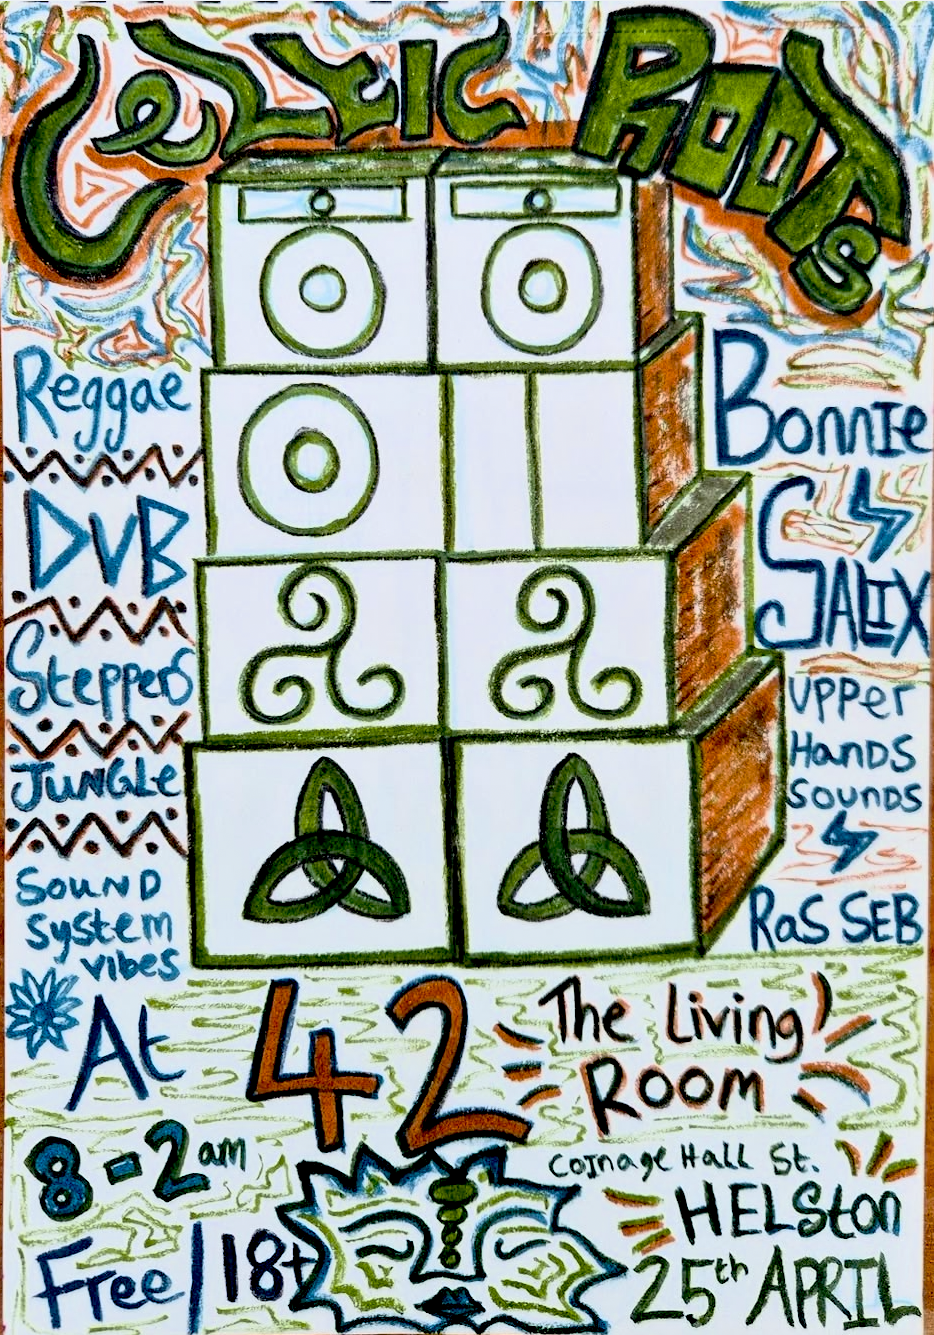 Celtic Roots
Reggae
DUB
Steppers
JUNGLE
Sound
System
vibes
Bonnie
SALIX
UPPer
HanDS
SOUNDS
RaS SEB
At 42 The Living
ROOM
8-2am
Free/18+
Coinage Hall St.
HELSton
25th APRIL